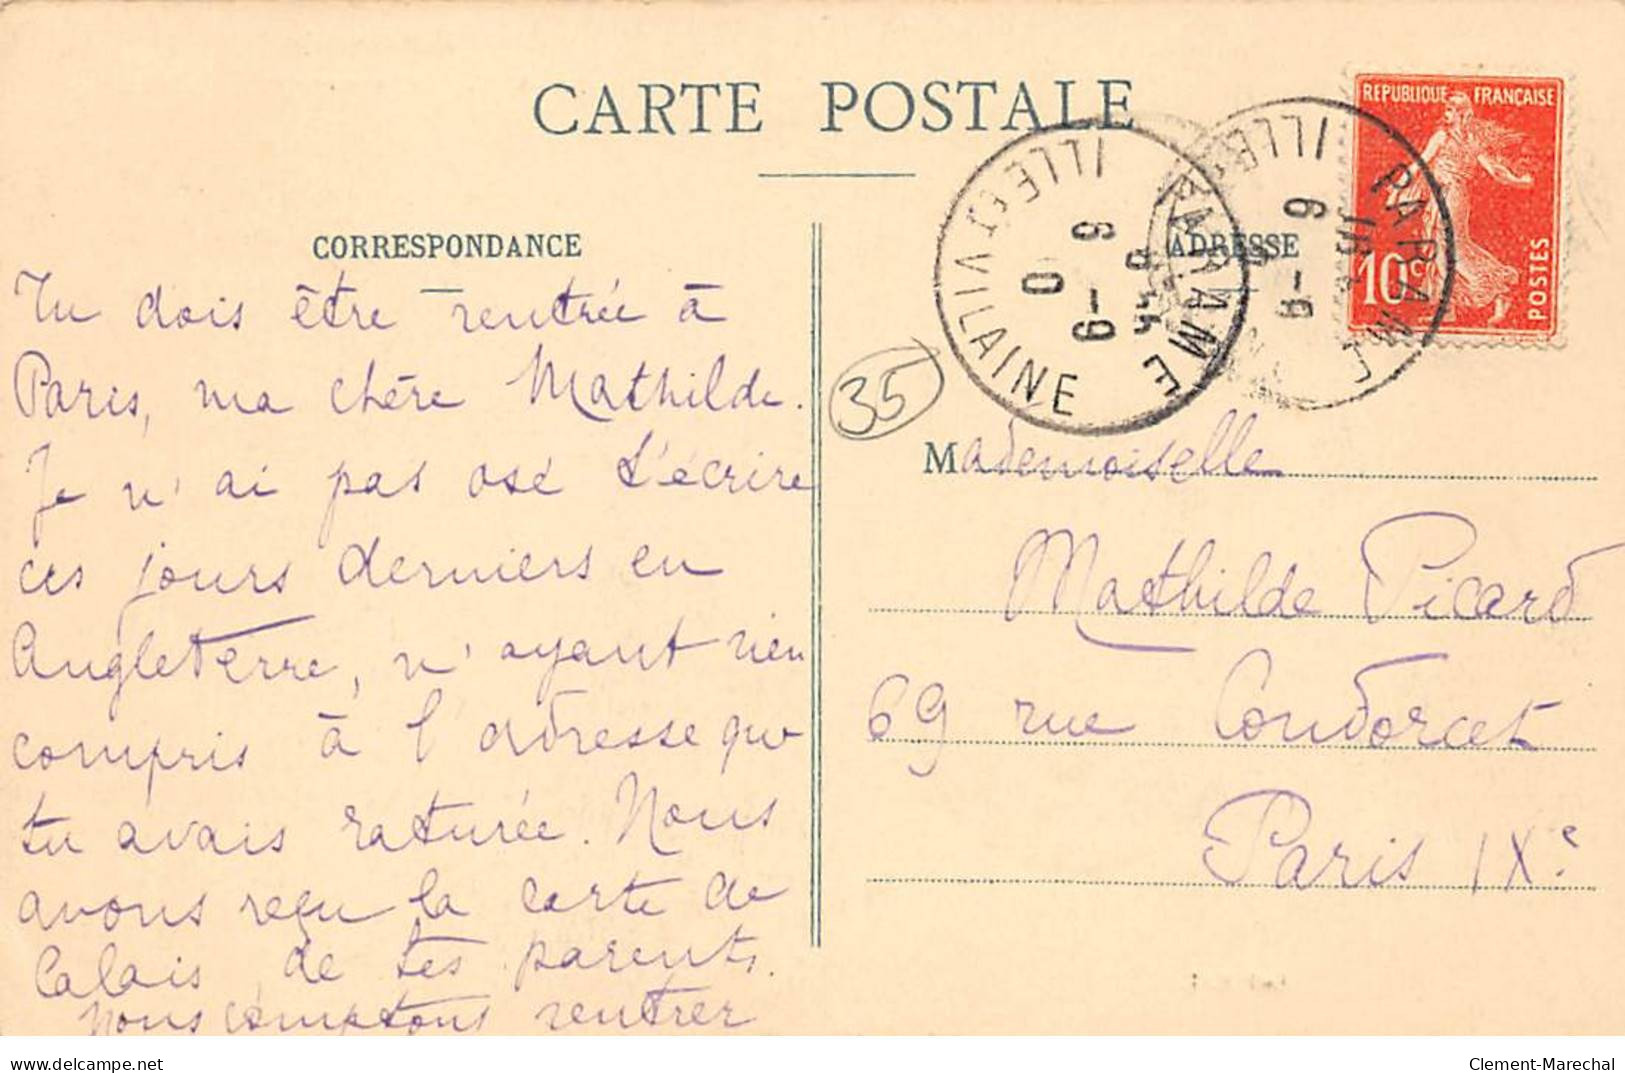 CARTE POSTALE
CORRESPONDANCE
Tu dois être rentrée à
Paris, ma chère Mathilde.
Je n'ai pas osé t'écrire
ces jours derniers en
Angleterre, n'ayant rien
compris à l'adresse que
tu avais raturée. Nous
avons reçu la carte de
Calais, de tes parents.
Nous comptons rentrer
35
ADRESSE
Mademoiselle
Mathilde Picard
69 rue Condorcet
Paris IXe
REPUBLIQUE FRANÇAISE
10c
POSTES
PARAMÉ
ILLE ET VILAINE
6 - 9
PARAMÉ
ILLE
6 - 9
delcampe.net
Clement-Marechal